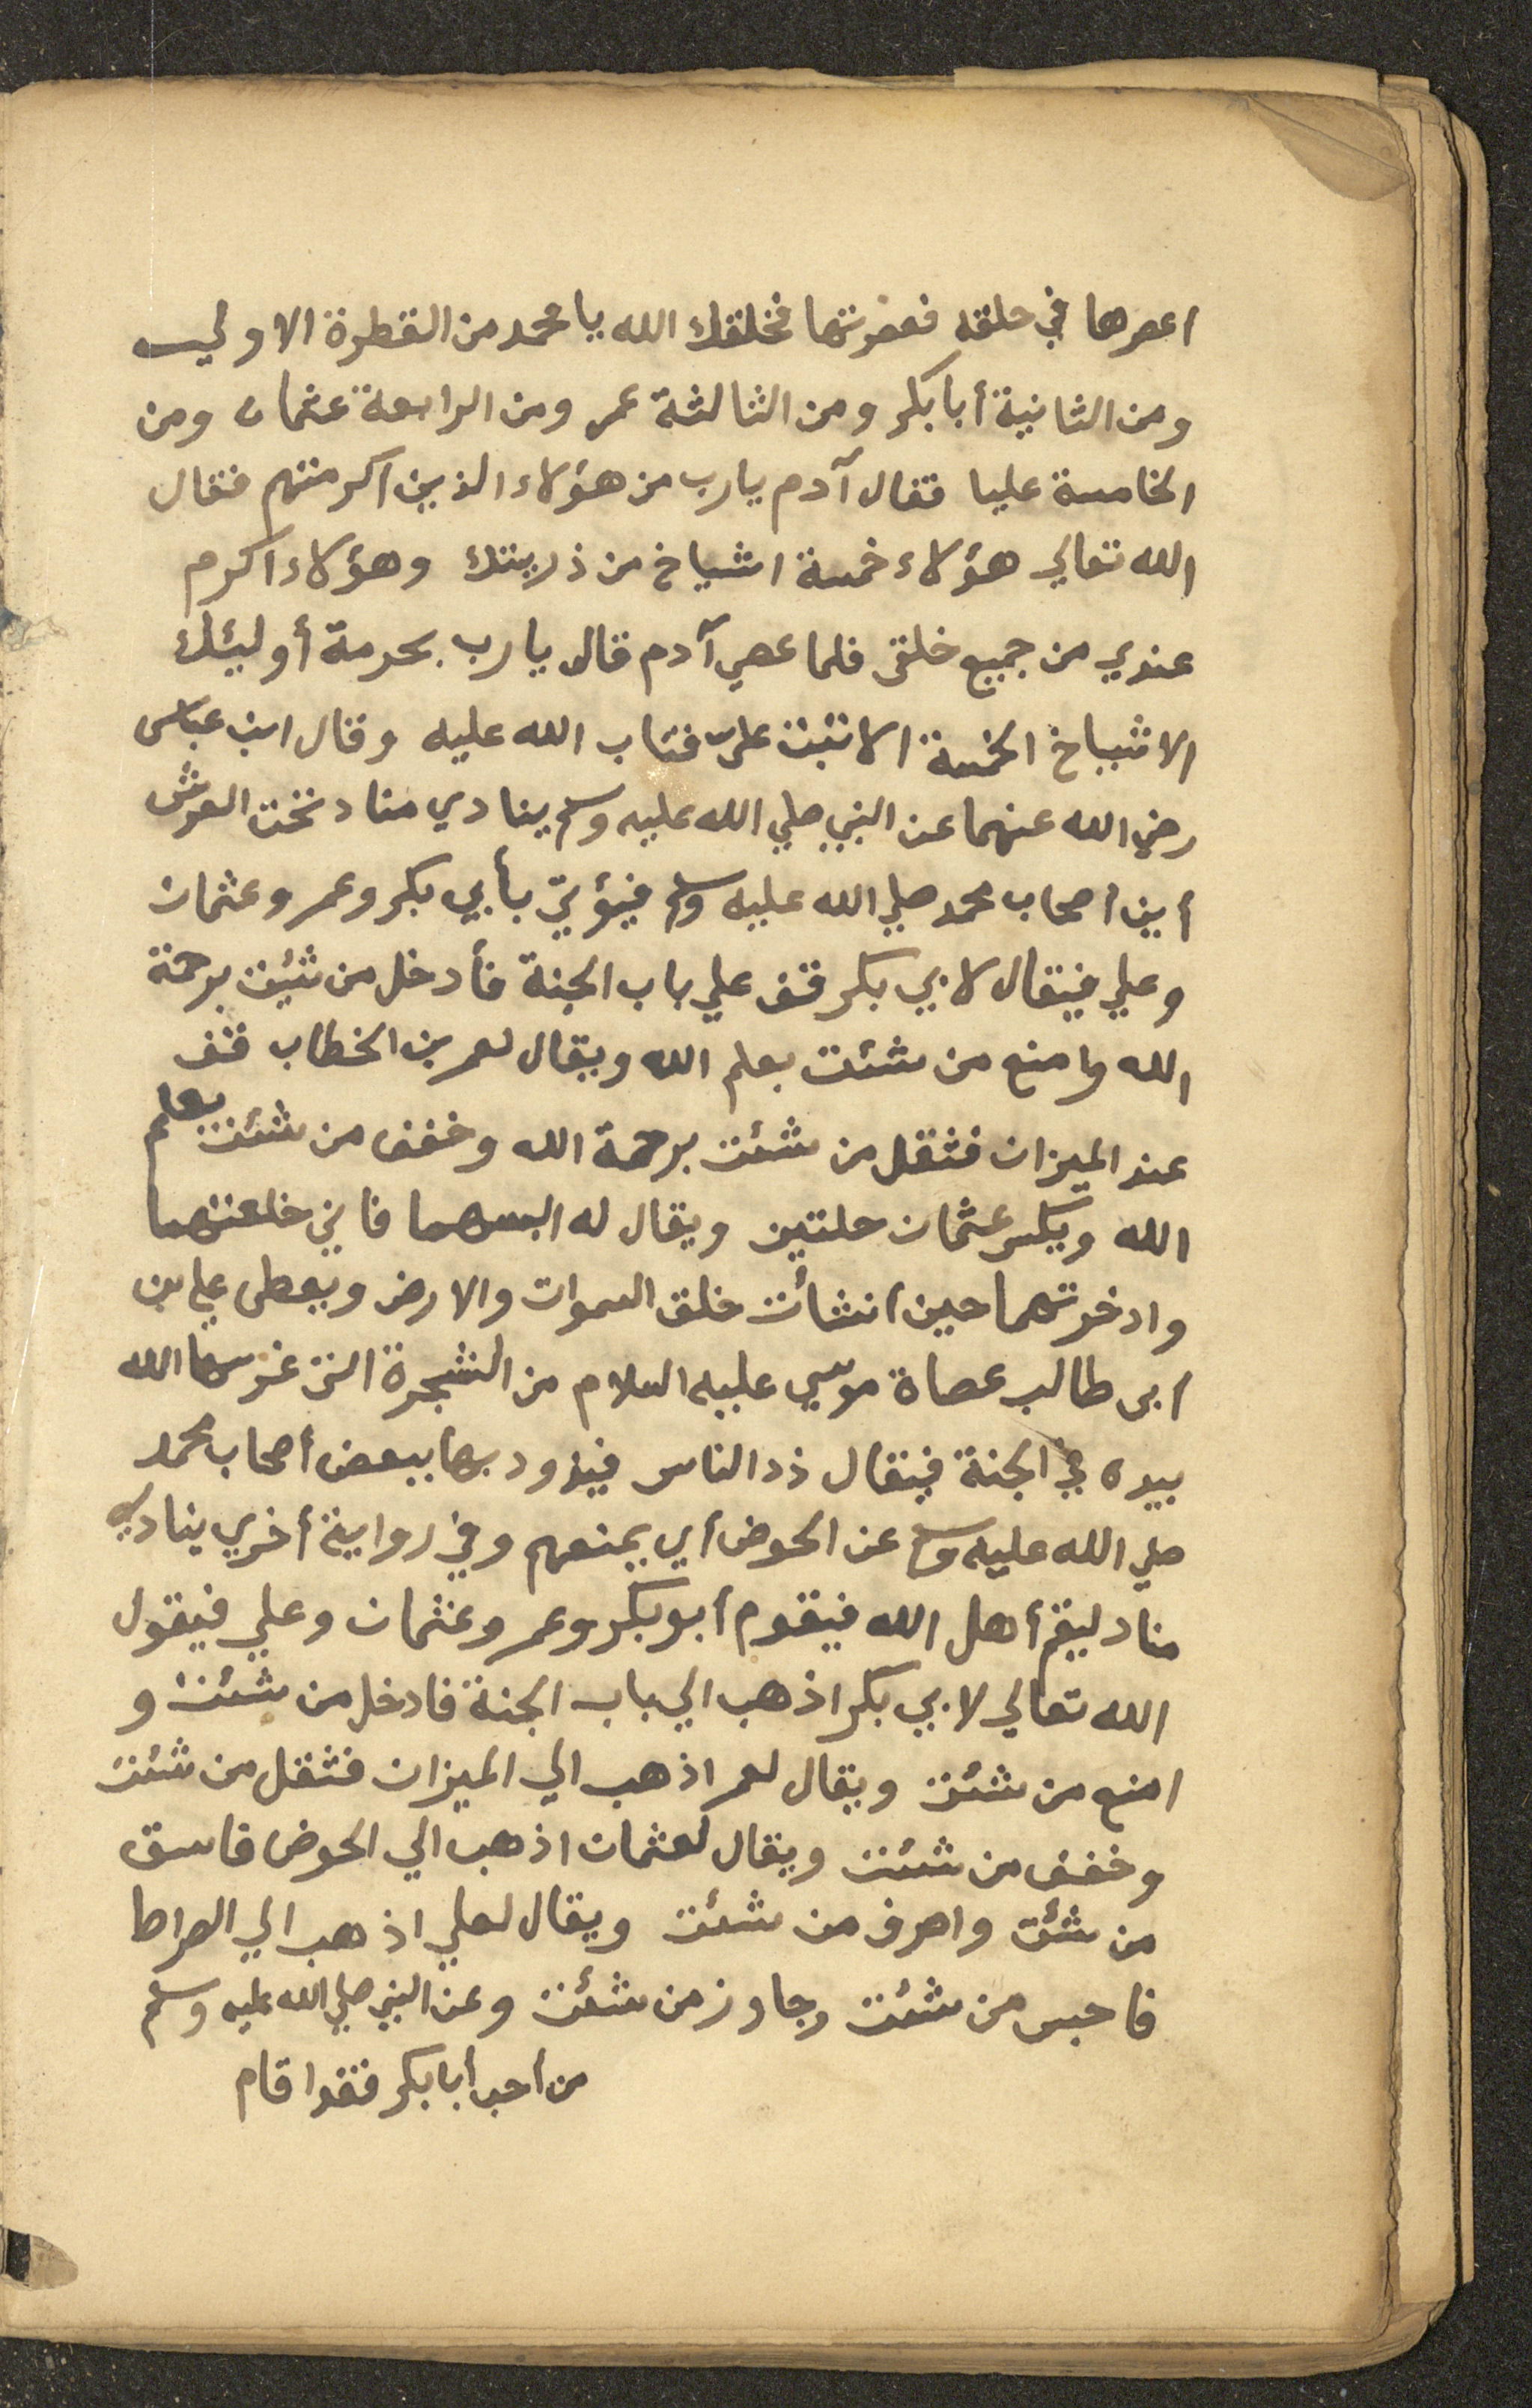 اعصرها في حلقه فعصرتها فخلقك الله يا محمد من القطرة الاولي
ومن الثانية أبا بكر ومن الثالثة عمر ومن الرابعة عثمان ومن
الخامسة عليا فقال آدم يارب من هؤلاء الذين اكرمتهم فقال
الله تعالي هؤلاء خمسة اشياخ من ذريتك وهؤلاء اكرم
عندي من جميع خلقى فلما عصي آدم قال يا رب بحرمة أوليئك
الاشياخ الخمسة الا تبت علىّ فتاب الله عليه وقال ابن عباس
رضي الله عنهما عن النبي صلي الله عليه وسلم ينادي مناد تحت العرش
أين اصحاب محمد صلي الله عليه وسلم فيؤتي بأبي بكر وعمر وعثمان
وعلي فيقال لابي بكر قف علي باب الجنة فأدخل من شئت برحمة
الله وامنع من شئت بعلم الله ويقال لعمر بن الخطاب قف
عند الميزان فثقل من شئت برحمة الله وخفف من شئت بعلم
الله ويكسى عثمان حلتين ويقال له البسهما فاني خلقتهما
وادخرتهما حين انشأت خلق السموات والارض ويعطى علي بن
ابى طالب عصاة موسي عليه السلام من الشجرة التى غرسها الله
بيده في الجنة فيقال ذد الناس فيذود بها ببعض أصحاب محمد
صلي الله عليه وسلم عن الحوض أي يمنعهم وفي رواية أخري ينادي
مناد ليقم أهل الله فيقوم أبو بكر وعمر وعثمان وعلي فيقول
الله تعالي لابي بكر اذهب الي باب الجنة فادخل من شئت و
امنع من شئت ويقال لعمر اذهب الي الميزان فثقل من شئت
وخفف من شئت ويقال لعثمان اذهب الي الحوض فاسق
من شئت واصرف من شئت ويقال لعلي اذهب الي الصراط
فاحبس من شئت وجاوز من شئت وعن النبي صلي الله عليه وسلم
من أحب أبا بكر فقد اقام